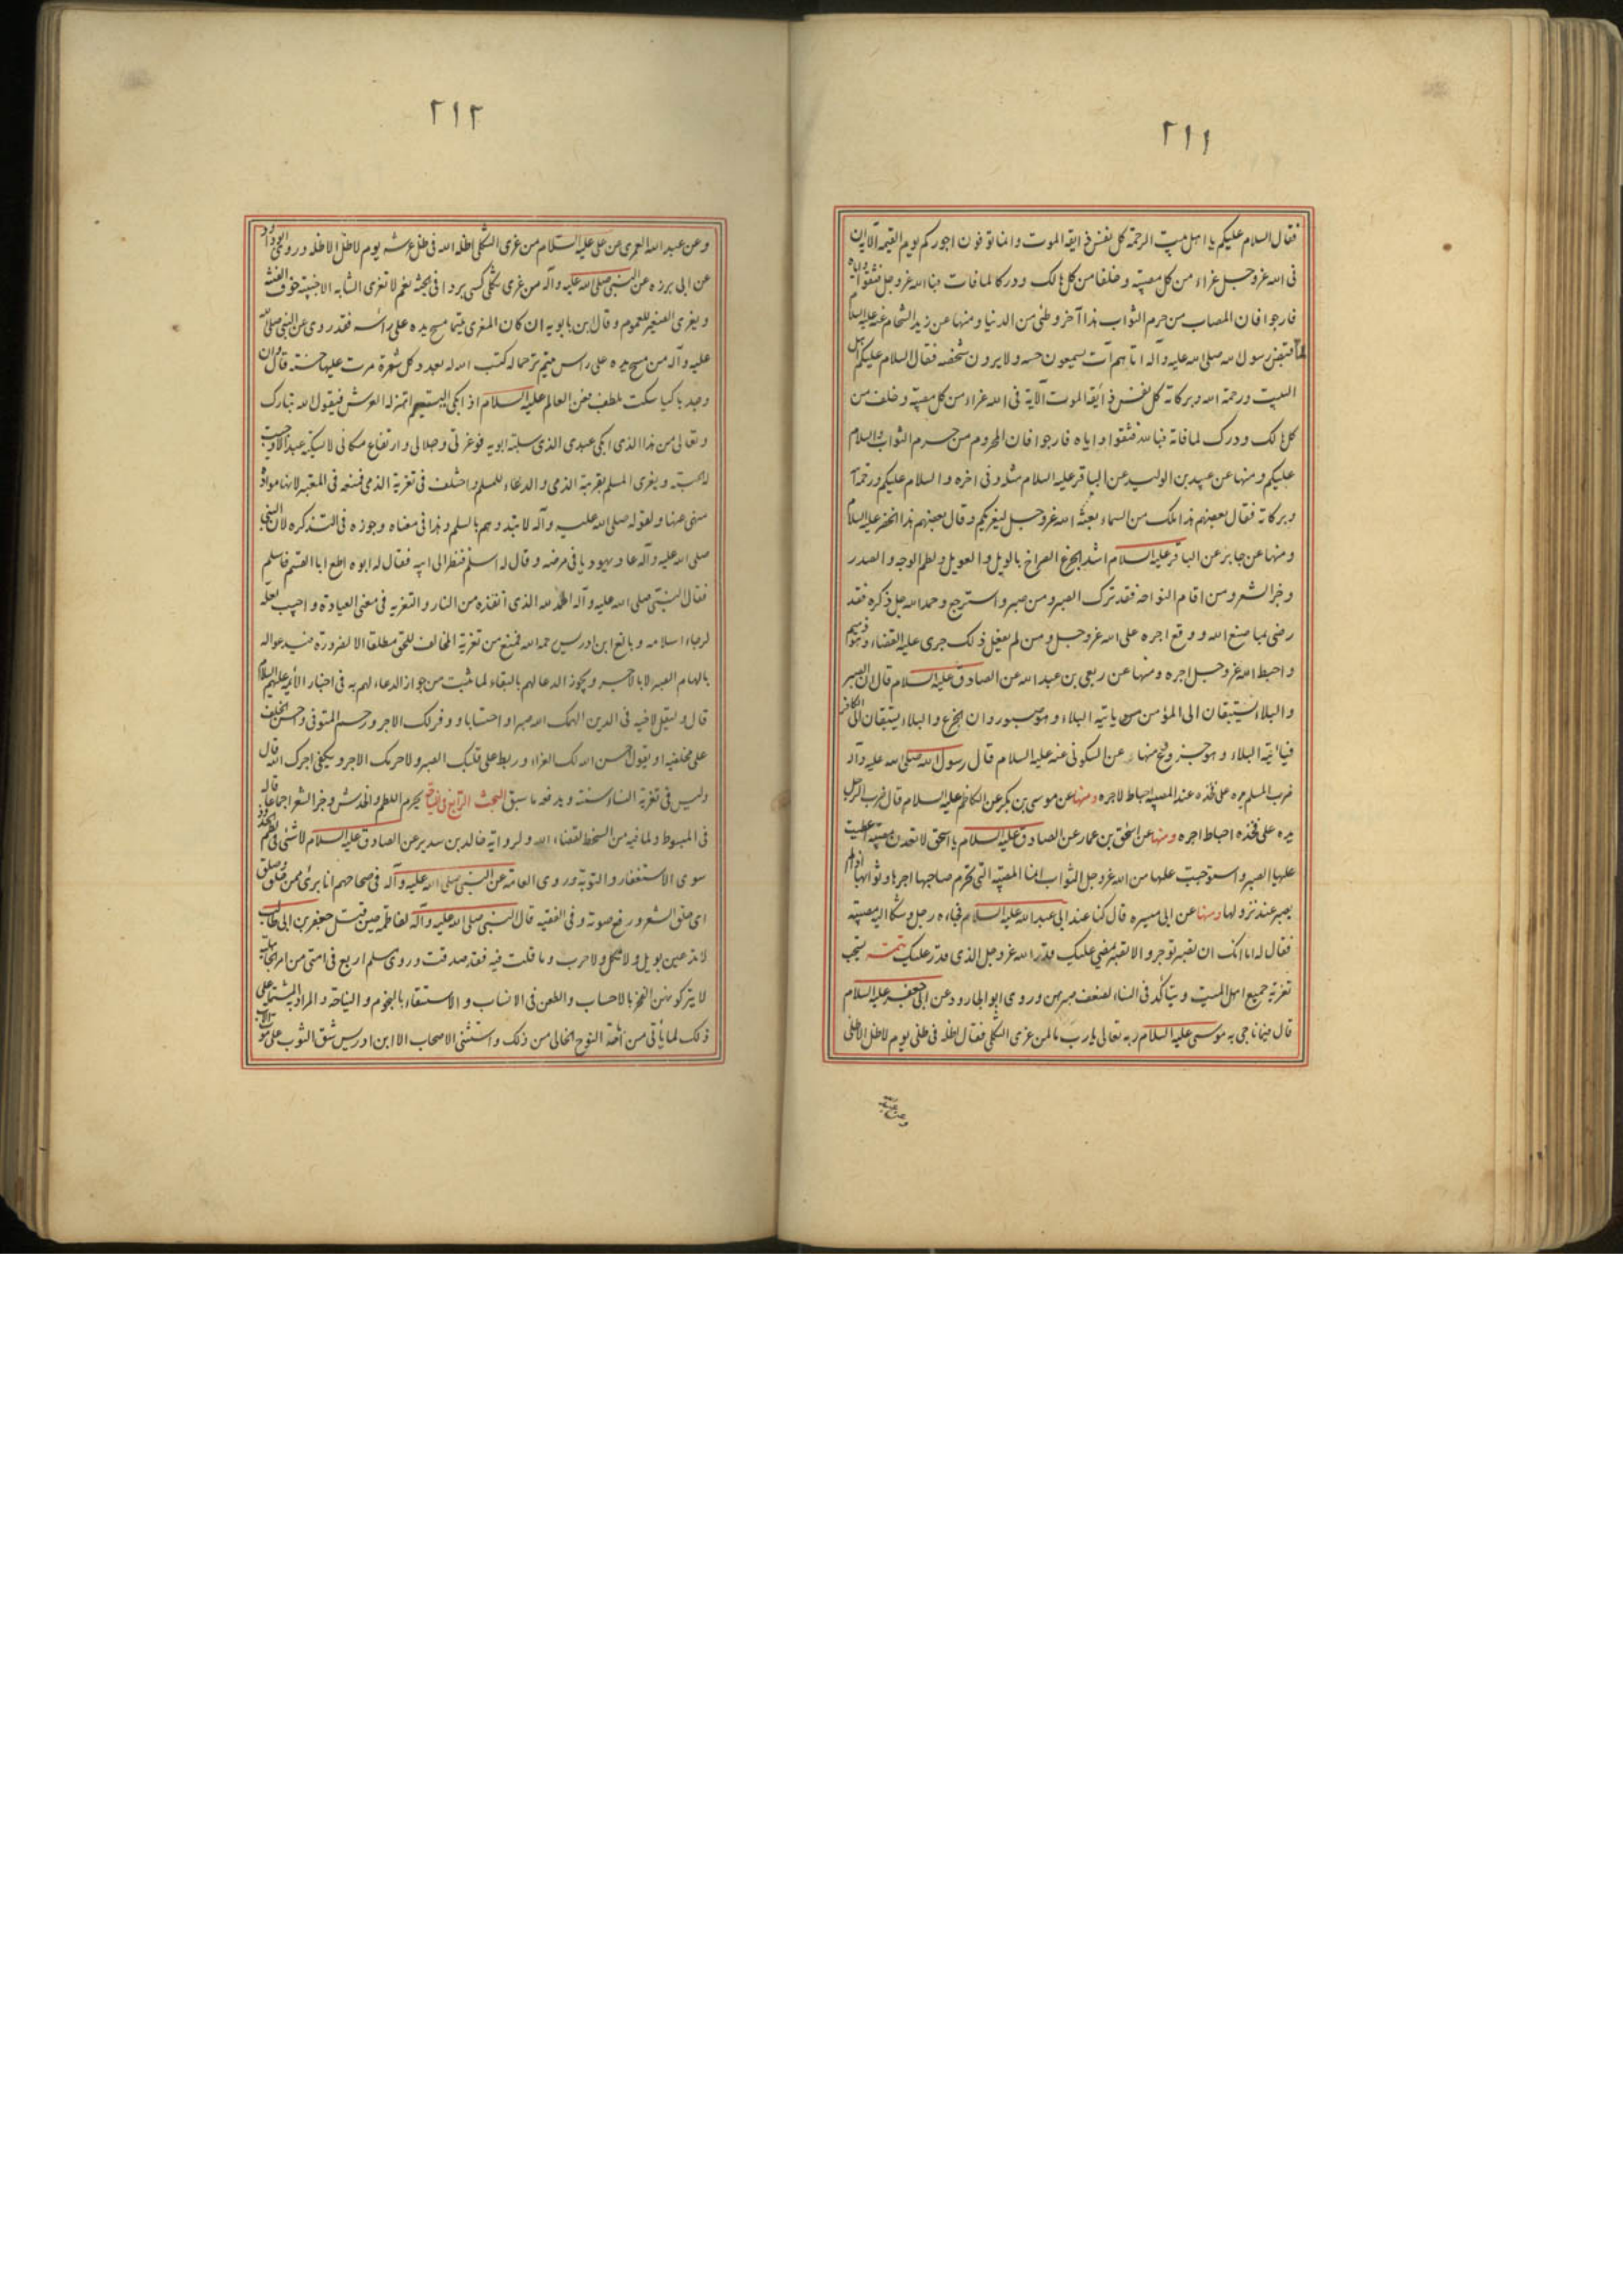 ٢١١
فقال السلام عليكم يا اهل بيت الرحمة كل نفس ذايقة الموت وانما توفون اجوركم يوم القيمة الآية ان
فى الله عزوجل عزاء من كل مصيبة وخلفا من كل هالك ودركا لما فات فبالله عزوجل فثقوا واياه
فارجوا فان المصاب من حرم الثواب هذا آخر وطئى من الدنيا ومنها عن زيد الشحام عنه عليه السلام
لما قبض رسول الله صلى الله عليه وآله اتاهم آت يسمعون حسه ولا يرون شخصه فقال السلام عليكم اهل
البيت ورحمة الله وبركاته كل نفس ذائقة الموت الآية فى الله عزاء من كل مصيبة وخلف من
كل هالك ودرك لما فات فبالله فثقوا واياه فارجوا فان المحروم من حرم الثواب والسلام
عليكم ومنها عن عبد بن الوليد عن الباقر عليه السلام مثله وفى اخره والسلام عليكم ورحمة الله
وبركاته فقال بعضهم هذا ملك من السماء بعثه الله عزوجل ليعزيكم وقال بعضهم هذا الخضر عليه السلام
ومنها عن جابر عن الباقر عليه السلام اشد الجزع الصراخ بالويل والعويل ولطم الوجه والصدر
وجز الشعر ومن اقام النواحة فقد ترك الصبر ومن صبر واسترجع وحمد الله جل ذكره فقد
رضى بما صنع الله ووقع اجره على الله عزوجل ومن لم يفعل ذلك جرى عليه القضاء وهو ذميم
واحبط الله عزوجل اجره ومنها عن ربعى بن عبد الله عن الصادق عليه السلام قال ان الصبر
والبلاء يستبقان الى المؤمن ياتيه البلاء وهو صبور وان الجزع والبلاء يستبقان الى الكافر
فياتيه البلاء وهو جزوع منها عن السكونى عنه عليه السلام قال رسول الله صلى الله عليه وآله
ضرب المسلم يده على فخذه عند المصيبة احباط لاجره ومنها عن موسى بن بكر عن الكاظم عليه السلام قال ضرب الرجل
يده على فخذه احباط اجره ومنها عن اسحق بن عمار عن الصادق عليه السلام يا اسحق لا تعدن مصيبة اعطيت
عليها الصبر واستوجبت عليها من الله عزوجل الثواب انما المصيبة التى تحرم صاحبها اجرها وثوابها اذا لم
يصبر عند نزولها ومنها عن ابى ميسره قال كنا عند ابى عبد الله عليه السلام فجاءه رجل وشكا اليه مصيبته
فقال له اما انك ان تصبر توجر والا تصبر يمضى عليك قدر الله عزوجل الذى قدر عليك تتمة يستحب
تعزية جميع اهل الميت ويتأكد فى النساء لضعف صبرهن وروى ابو الجارود عن ابى جعفر عليه السلام
قال فيما ناجى به موسى عليه السلام ربه تعالى يا رب ما لمن عزى الثكلى فقال اظله فى ظلى يوم لا ظل الا ظلى
وعن عبد الله
٢١٢
وعن عبد الله العمرى عن على عليه السلام من عزى الثكلى اظله الله فى ظل عرشه يوم لا ظل الا ظله وروى ابو داود
عن ابى برزه عن النبى صلى الله عليه وآله من عزى ثكلى كسى بردا فى الجنة نعم لا تعزى الشابه الاجنبية خوف الفتنة
ويعزى الصغير للعموم وقال ابن بابويه ان كان المعزى يتيما مسح يده على رأسه فقد روى عن النبى صلى الله
عليه وآله من مسح يده على راس يتيم ترحما له كتب الله له بعدد كل شعرة مرت عليها حسنة قال وان
وجد باكيا سكت بلطف فعن العالم عليه السلام اذا بكى اليتيم اهتز له العرش فيقول الله تبارك
وتعالى من هذا الذى ابكى عبدى الذى سلبته ابويه فوعزتى وجلالى وارتفاع مكانى لا يسكته عبد الا وجبت
له الجنة ويعزى المسلم بقريبه الذمى والدعاء للمسلم واختلف فى تعزية الذمى فمنعه فى المعتبر لانها موادة
منهى عنها ولقوله صلى الله عليه وآله لا تبدوهم بالسلم وهذا فى معناه وجوزه فى التذكره لان النبى
صلى الله عليه وآله عاد يهوديا فى مرضه وقال له اسلم فنظر الى ابيه فقال له ابوه اطع ابا القسم فاسلم
فقال النبى صلى الله عليه وآله الحمد لله الذى انقذه من النار والتعزيه فى معنى العيادة واجيب لعله
لرجاء اسلامه وبالغ ابن ادريس رحمه الله فمنع من تعزية المخالف للحق مطلقا الا لضرورة فيدعوا له
بالهام الصبر لا بالاجر ويجوز الدعا لهم بالبقاء لما ثبت من جواز الدعاء لهم به فى اخبار الائمة عليهم السلام
قال وليقل لاخيه فى الدين الهمك الله صبرا واحتسابا ووفر لك الاجر ورحم المتوفى واحسن الخلف
على مخلفيه او يقول احسن الله لك العزاء وربط على قلبك الصبر ولا حرمك الاجر ويكفى اجرك الله قال
وليس فى تعزية النساء سنة ويدفعه ما سبق البحث الرابع فى النياحة يحرم اللطم والخدش وجز الشعر اجماعا قاله
فى المبسوط ولما فيه من السخط لقضاء الله ولرواية خالد بن سدير عن الصادق عليه السلام لا شئ فى لطم الخدود
سوى الاستغفار والتوبة وروى العامة عن النبى صلى الله عليه وآله فى صحاحهم انا برئ ممن حلق وصلق
اى حلق الشعر ورفع صوته وفى الفقيه قال النبى صلى الله عليه وآله لفاطمة حين قتل جعفر بن ابى طالب
لا تدعين بويل ولا ثكل ولا حرب وما قلت فيه فقد صدقت وروى مسلم اربع فى امتى من امر الجاهلية
لا يتركونهن الفخر بالاحساب والطعن فى الانساب والاستسقاء بالنجوم والنياحة والمراد به المشتمل على
ذلك لما يأتى من اباحة النوح الخالى من ذلك واستثنى الاصحاب الا ابن ادريس شق الثوب على موت الاب